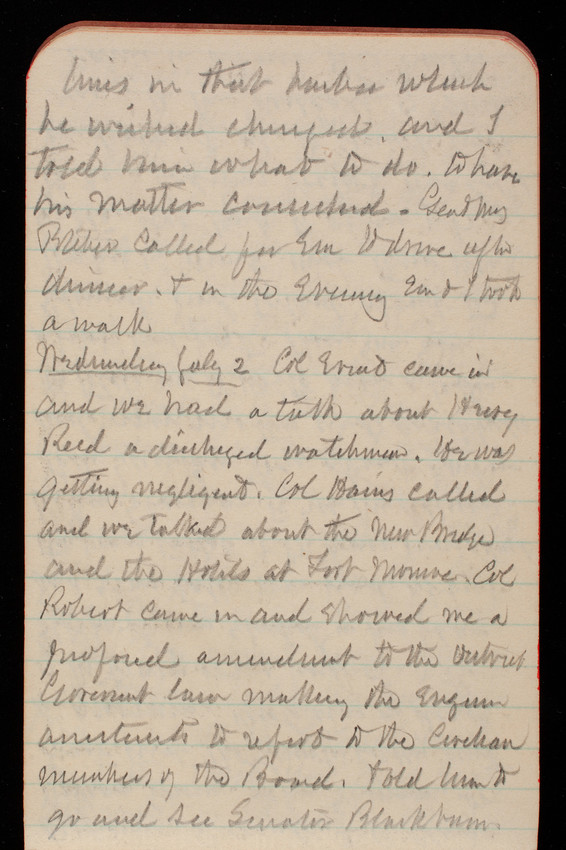 lines in that harbor which
he wished changed. and I
told him what to do. to have
his matter considered - Genl
called for Em to drive after
dinner. + in the Evening Em & I took
a walk
Wednesday July 2 Col Ernst came in
and we had a talk about Henry
Reed a discharged watchman. He was
getting negligent. Col Hains called
and we talked about the New Bridge
and the Hotels at Fort Monroe. Col
Robert came in and showed me a
proposed amendment to the District
Government law making the Engineer
assistants to report to the Civilian
members of the Board. I told him to
go and see Senator Blackburn.